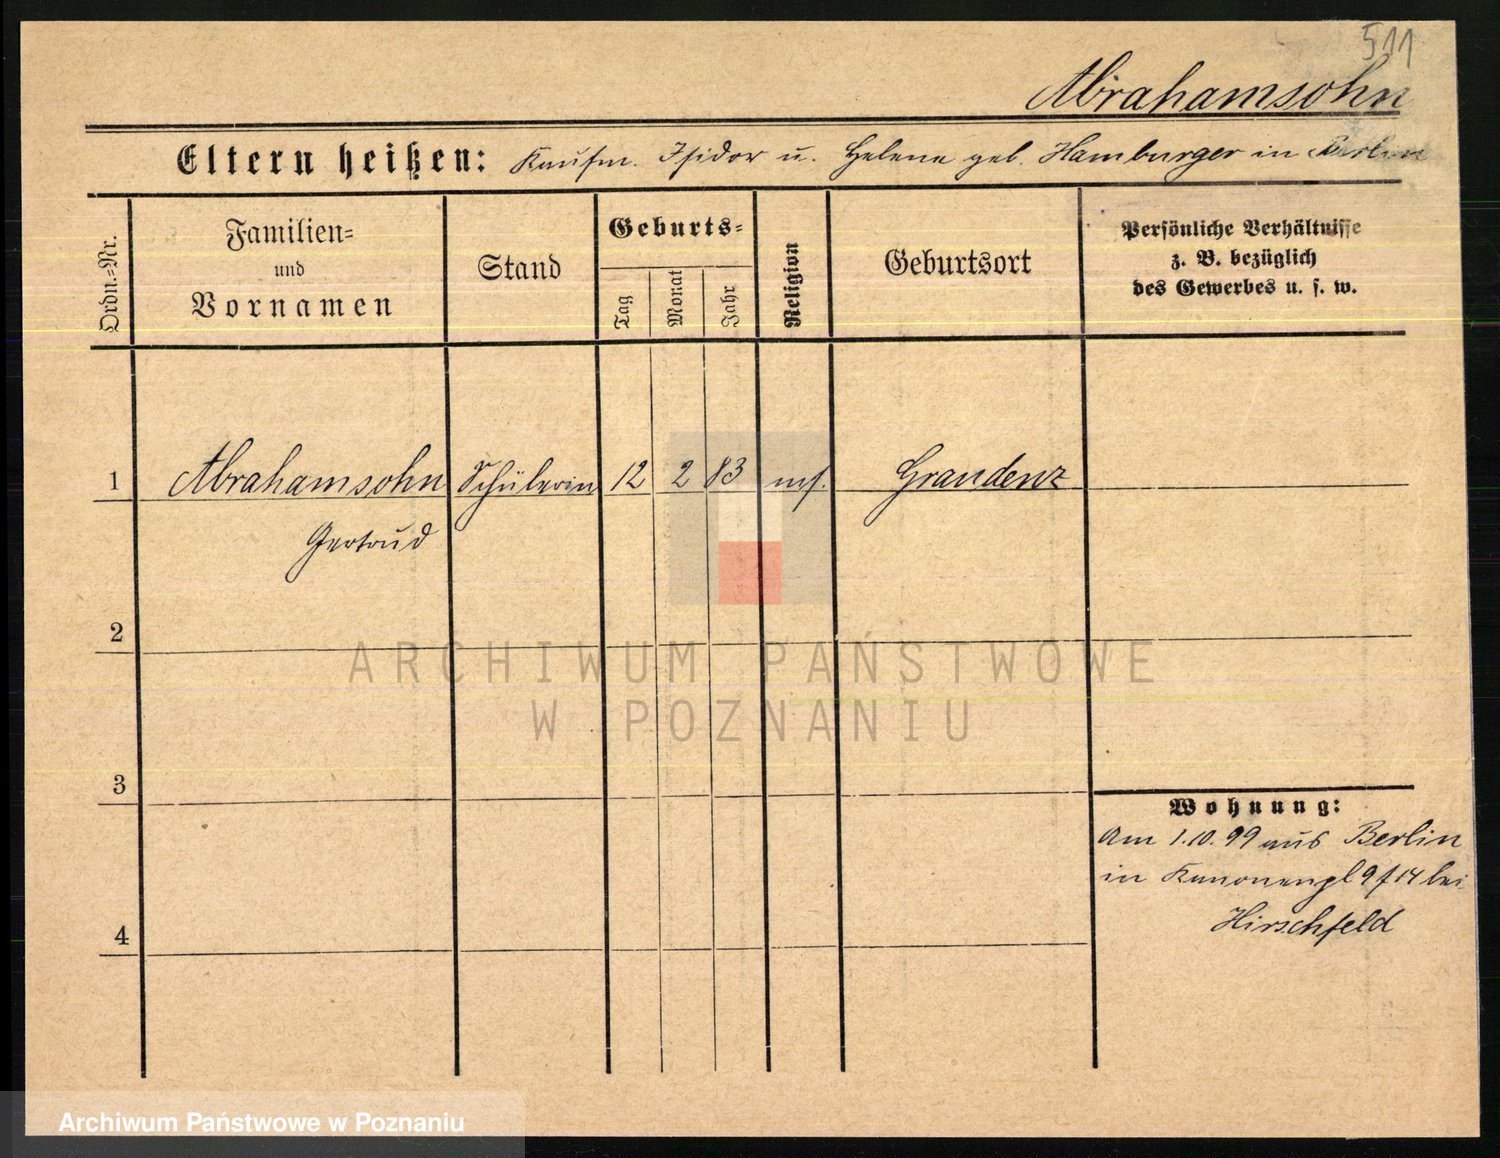 511
Abrahamsohn
Eltern heißen: Kaufm. Isidor u. Helene geb. Hamburger in Berlin
Ordn.=Nr.
Familien=
und
Vornamen
Stand
Geburts=
Tag
Monat
Jahr
Religion
Geburtsort
Persönliche Verhältnisse
z. B. bezüglich
des Gewerbes u. s. w.
1 Abrahamsohn Schülerin 12 2 83 mos. Graudenz
Gertrud
2
ARCHIWUM PAŃSTWOWE
W POZNANIU
3
Wohnung:
Am 1.10.99 aus Berlin
in Kanonenpl 9 14 bei
Hirschfeld
4
Archiwum Państwowe w Poznaniu